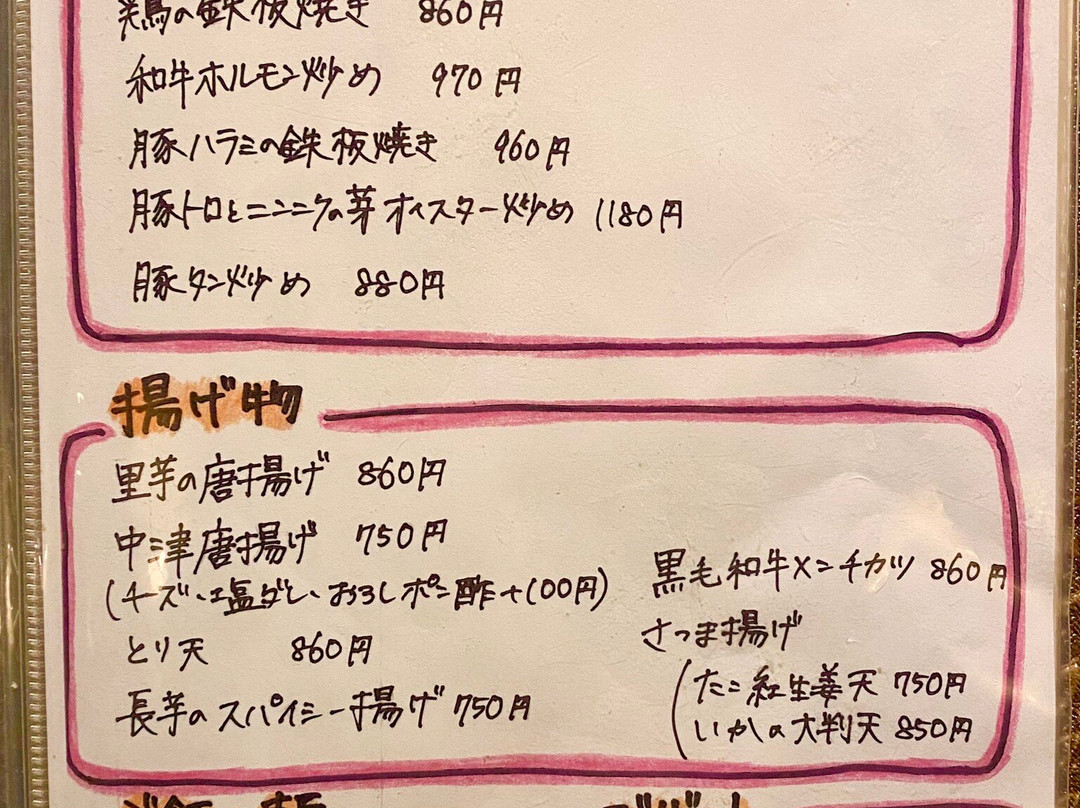 鶏の鉄板焼き 860円
和牛ホルモン炒め 970円
豚ハラミの鉄板焼き 960円
豚トロとニンニクの芽オイスター炒め 1180円
豚タン炒め 880円
揚げ物
里芋の唐揚げ 860円
中津唐揚げ 750円
(チーズ、塩ダレ、おろしポン酢+100円)
とり天 860円
長芋のスパイシー揚げ 750円
黒毛和牛メンチカツ 860円
さつま揚げ
(たこ紅生姜天 750円
いかの大判天 850円